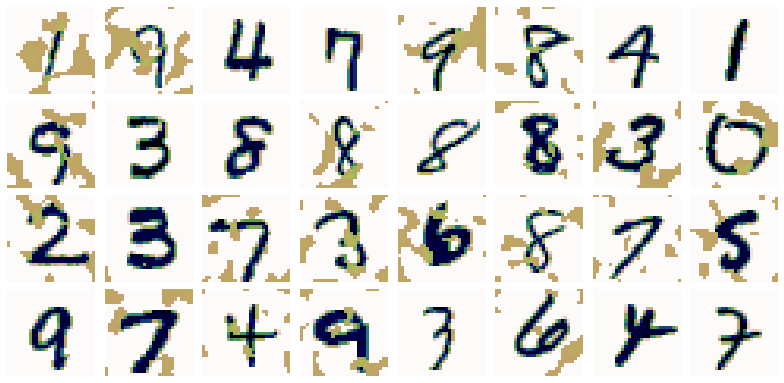 1 9 4 7 9 8 4 1
9 3 8 8 8 8 3 0
2 3 7 3 6 8 7 5
9 7 4 9 3 6 4 7